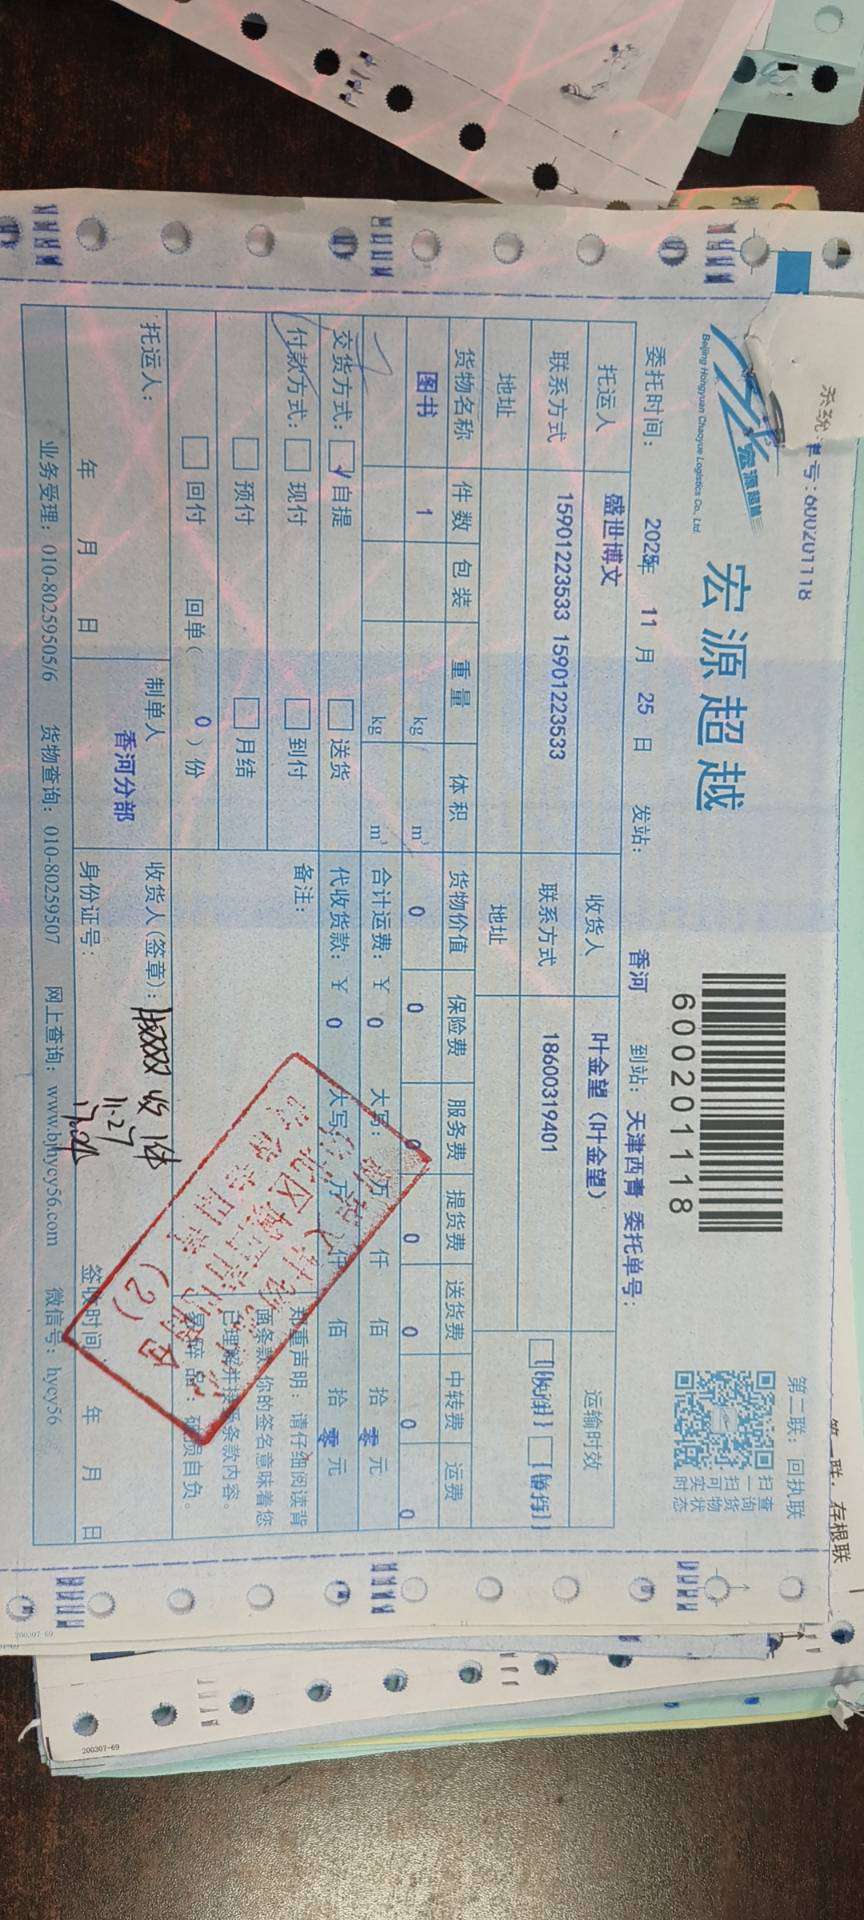 系统单号:600201118
第二联：回执联
第一联：存根联
宏源超越
Beijing Hongyuan Chaoyue Logistics Co., Ltd.
宏源超越
600201118
扫一扫可实时
查询货物状态
委托时间： 2025年 11 月 25 日 发站： 香河 到站：天津西青 委托单号：
托运人 盛世博文 收货人 叶金望（叶金望） 运输时效
联系方式 15901223533 15901223533 联系方式 18600319401
地址 地址
货物名称 件数 包装 重量 体积 货物价值 保险费 服务费 提货费 送货费 中转费 运费
图书 1 kg m³ 0 0 0 0 0 0 0
kg m³ 合计运费：￥ 0 大写： 万 仟 佰 拾 零 元
交货方式： 自提 送货 代收货款：￥ 0 大写： 万 仟 佰 拾 零 元
付款方式： 现付 到付 备注：
预付 月结
回付 回单（ 0 ）份
郑重声明：请仔细阅读背
面条款，你的签名意味着您
已理解并接受条款内容。
易碎品：破损自负。
(2)
托运人： 制单人 收货人(签章)：
香河分部
11.27
年 月 日 身份证号： 签收时间 年 月 日
业务受理：010-80259505/6 货物查询：010-80259507 网上查询：www.bjhycy56.com 微信号：hycy56
200307-69
200307-69